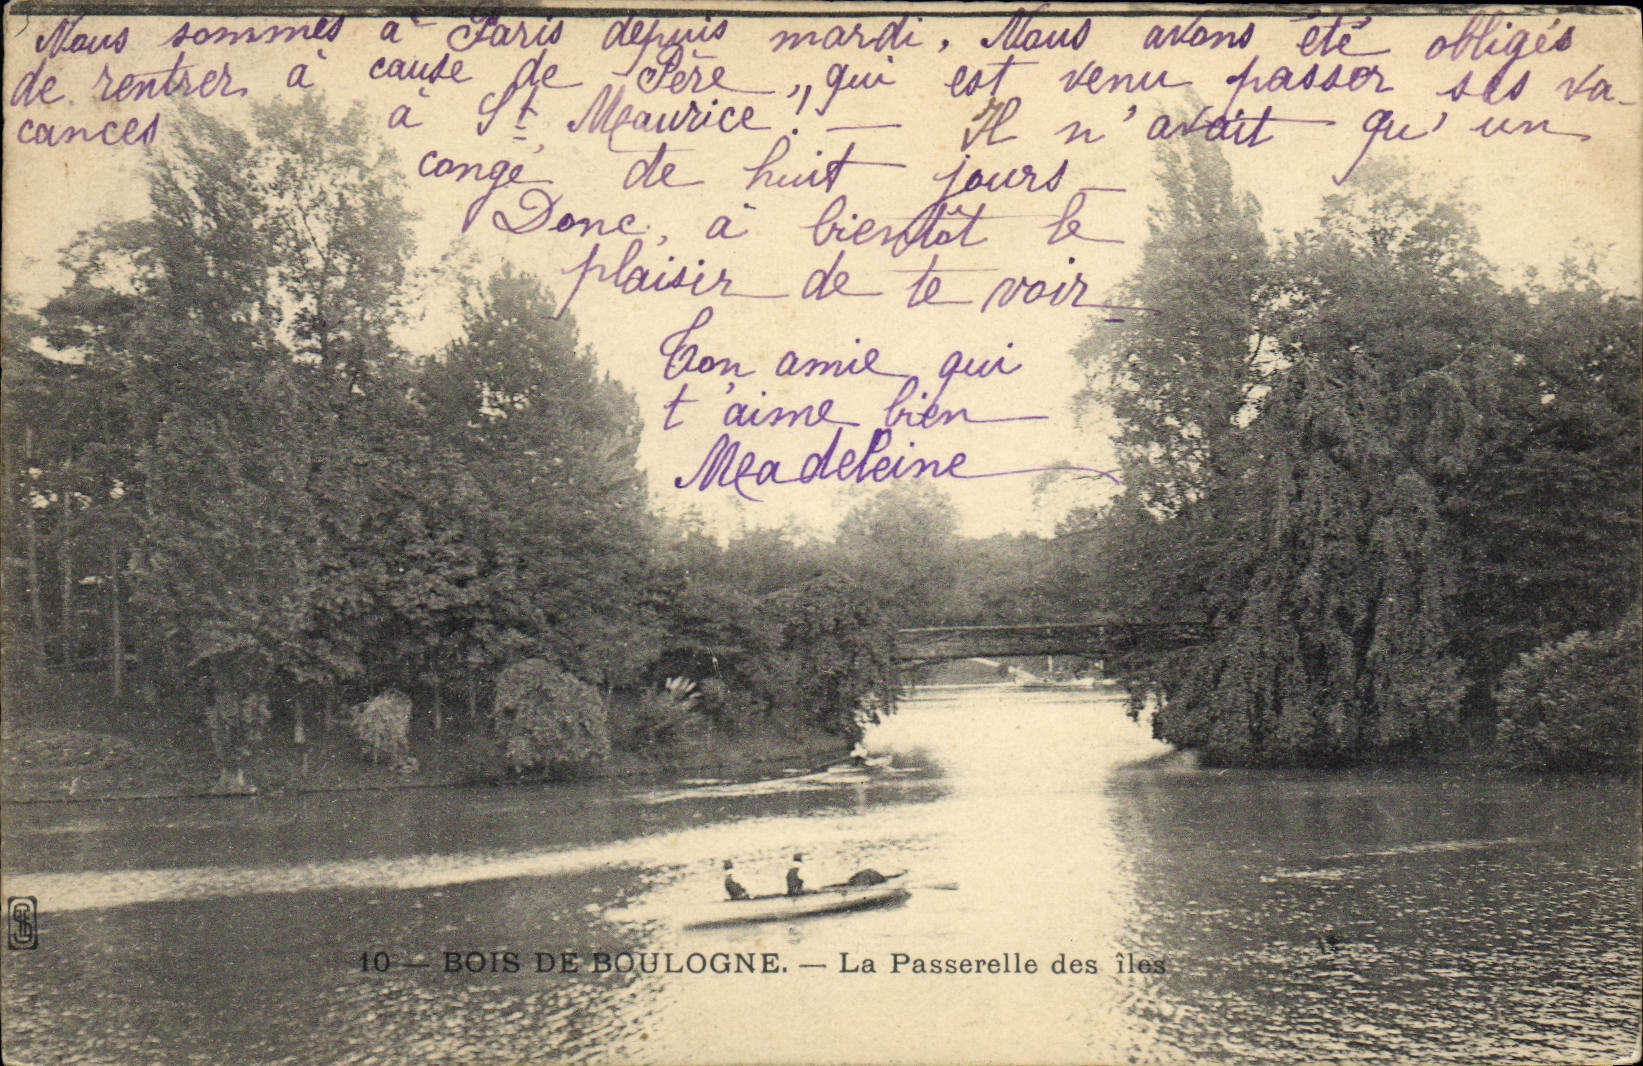 Nous sommes à Paris depuis mardi. Nous avons été obligés
de rentrer à cause de Père, qui est venu passer ses va-
cances à St Maurice. — Il n'avait qu'un
congé de huit jours
Donc, à bientôt le
plaisir de te voir
Ton amie qui
t'aime bien
Madeleine
10 — BOIS DE BOULOGNE. — La Passerelle des îles